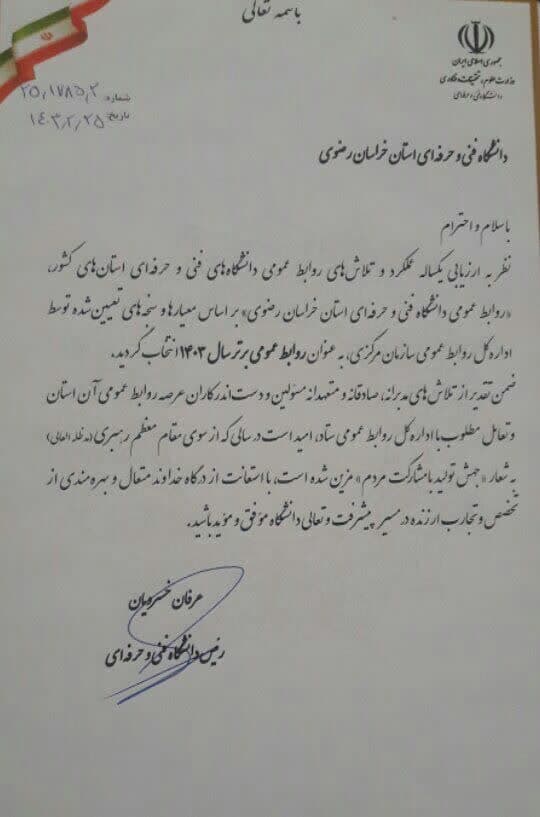 باسمه تعالی
جمهوری اسلامی ایران
وزارت علوم، تحقیقات و فناوری
دانشگاه فنی و حرفه‌ای
شماره: ۲۵,۱۷۸۵,۲
تاریخ: ۱۴۰۳,۲,۲۵
دانشگاه فنی و حرفه ای استان خراسان رضوی
با سلام و احترام
نظر به ارزیابی یکساله عملکرد و تلاش‌های روابط عمومی دانشگاه‌های فنی و حرفه ای استان‌های کشور،
«روابط عمومی دانشگاه فنی و حرفه ای استان خراسان رضوی» بر اساس معیارها و سنجه‌های تعیین شده توسط
اداره کل روابط عمومی سازمان مرکزی، به عنوان روابط عمومی برتر سال ۱۴۰۳ انتخاب گردید.
ضمن تقدیر از تلاش های مدبرانه، صادقانه و متعهدانه مسئولین و دست اندرکاران عرصه روابط عمومی آن استان
و تعامل مطلوب با اداره کل روابط عمومی ستاد، امید است در سالی که از سوی مقام معظم رهبری (مدظله العالی)
به شعار «جهش تولید با مشارکت مردم» مزین شده است، با استعانت از درگاه خداوند متعال و بهره مندی از
تخصص و تجارب ارزنده در مسیر پیشرفت و تعالی دانشگاه موفق و مؤید باشید.
عرفان خسرویان
رئیس دانشگاه فنی و حرفه ای